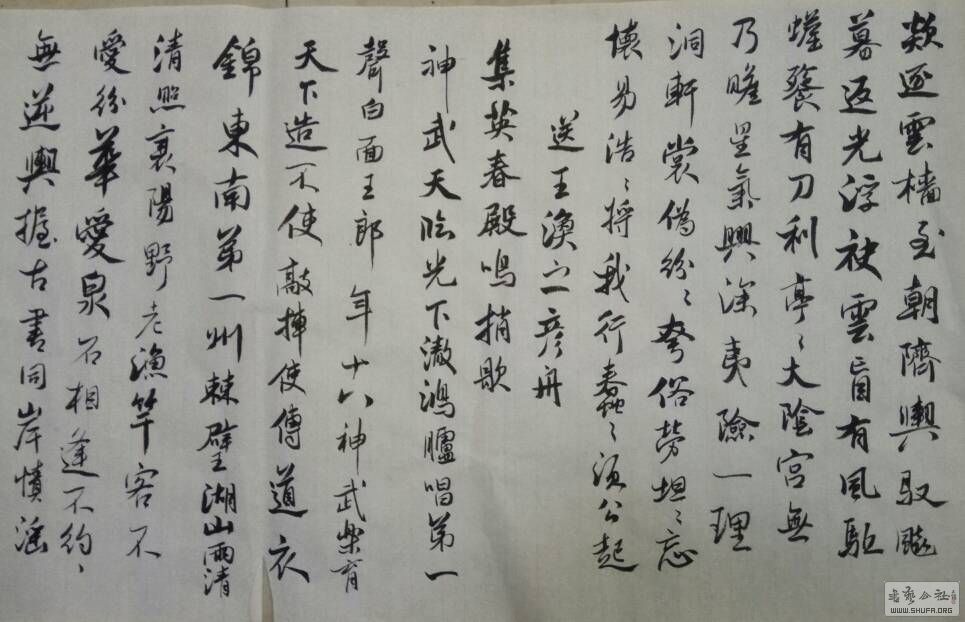 欻逐雲檣至朝隮輿馭飈
暮返光浮袂雲盲有風駈
蟾餮有刀利亭〻太陰宮無
乃瞻星氣興深夷險一理
洞軒裳偽紛〻夸俗勞坦〻忘
懷易浩〻將我行蠢〻須公起
送王渙之彥舟
集英春殿鳴捎歇
神武天臨光下澈鴻臚唱第一
聲白面王郎年十八神武樂育
天下造不使敲抨使傳道衣
錦東南第一州棘璧湖山兩清
清照襄陽野老漁竿客不
愛紛華愛泉石相逢不約〻
無逆輿握古書同岸幘滛
WWW.SHUFA.ORG